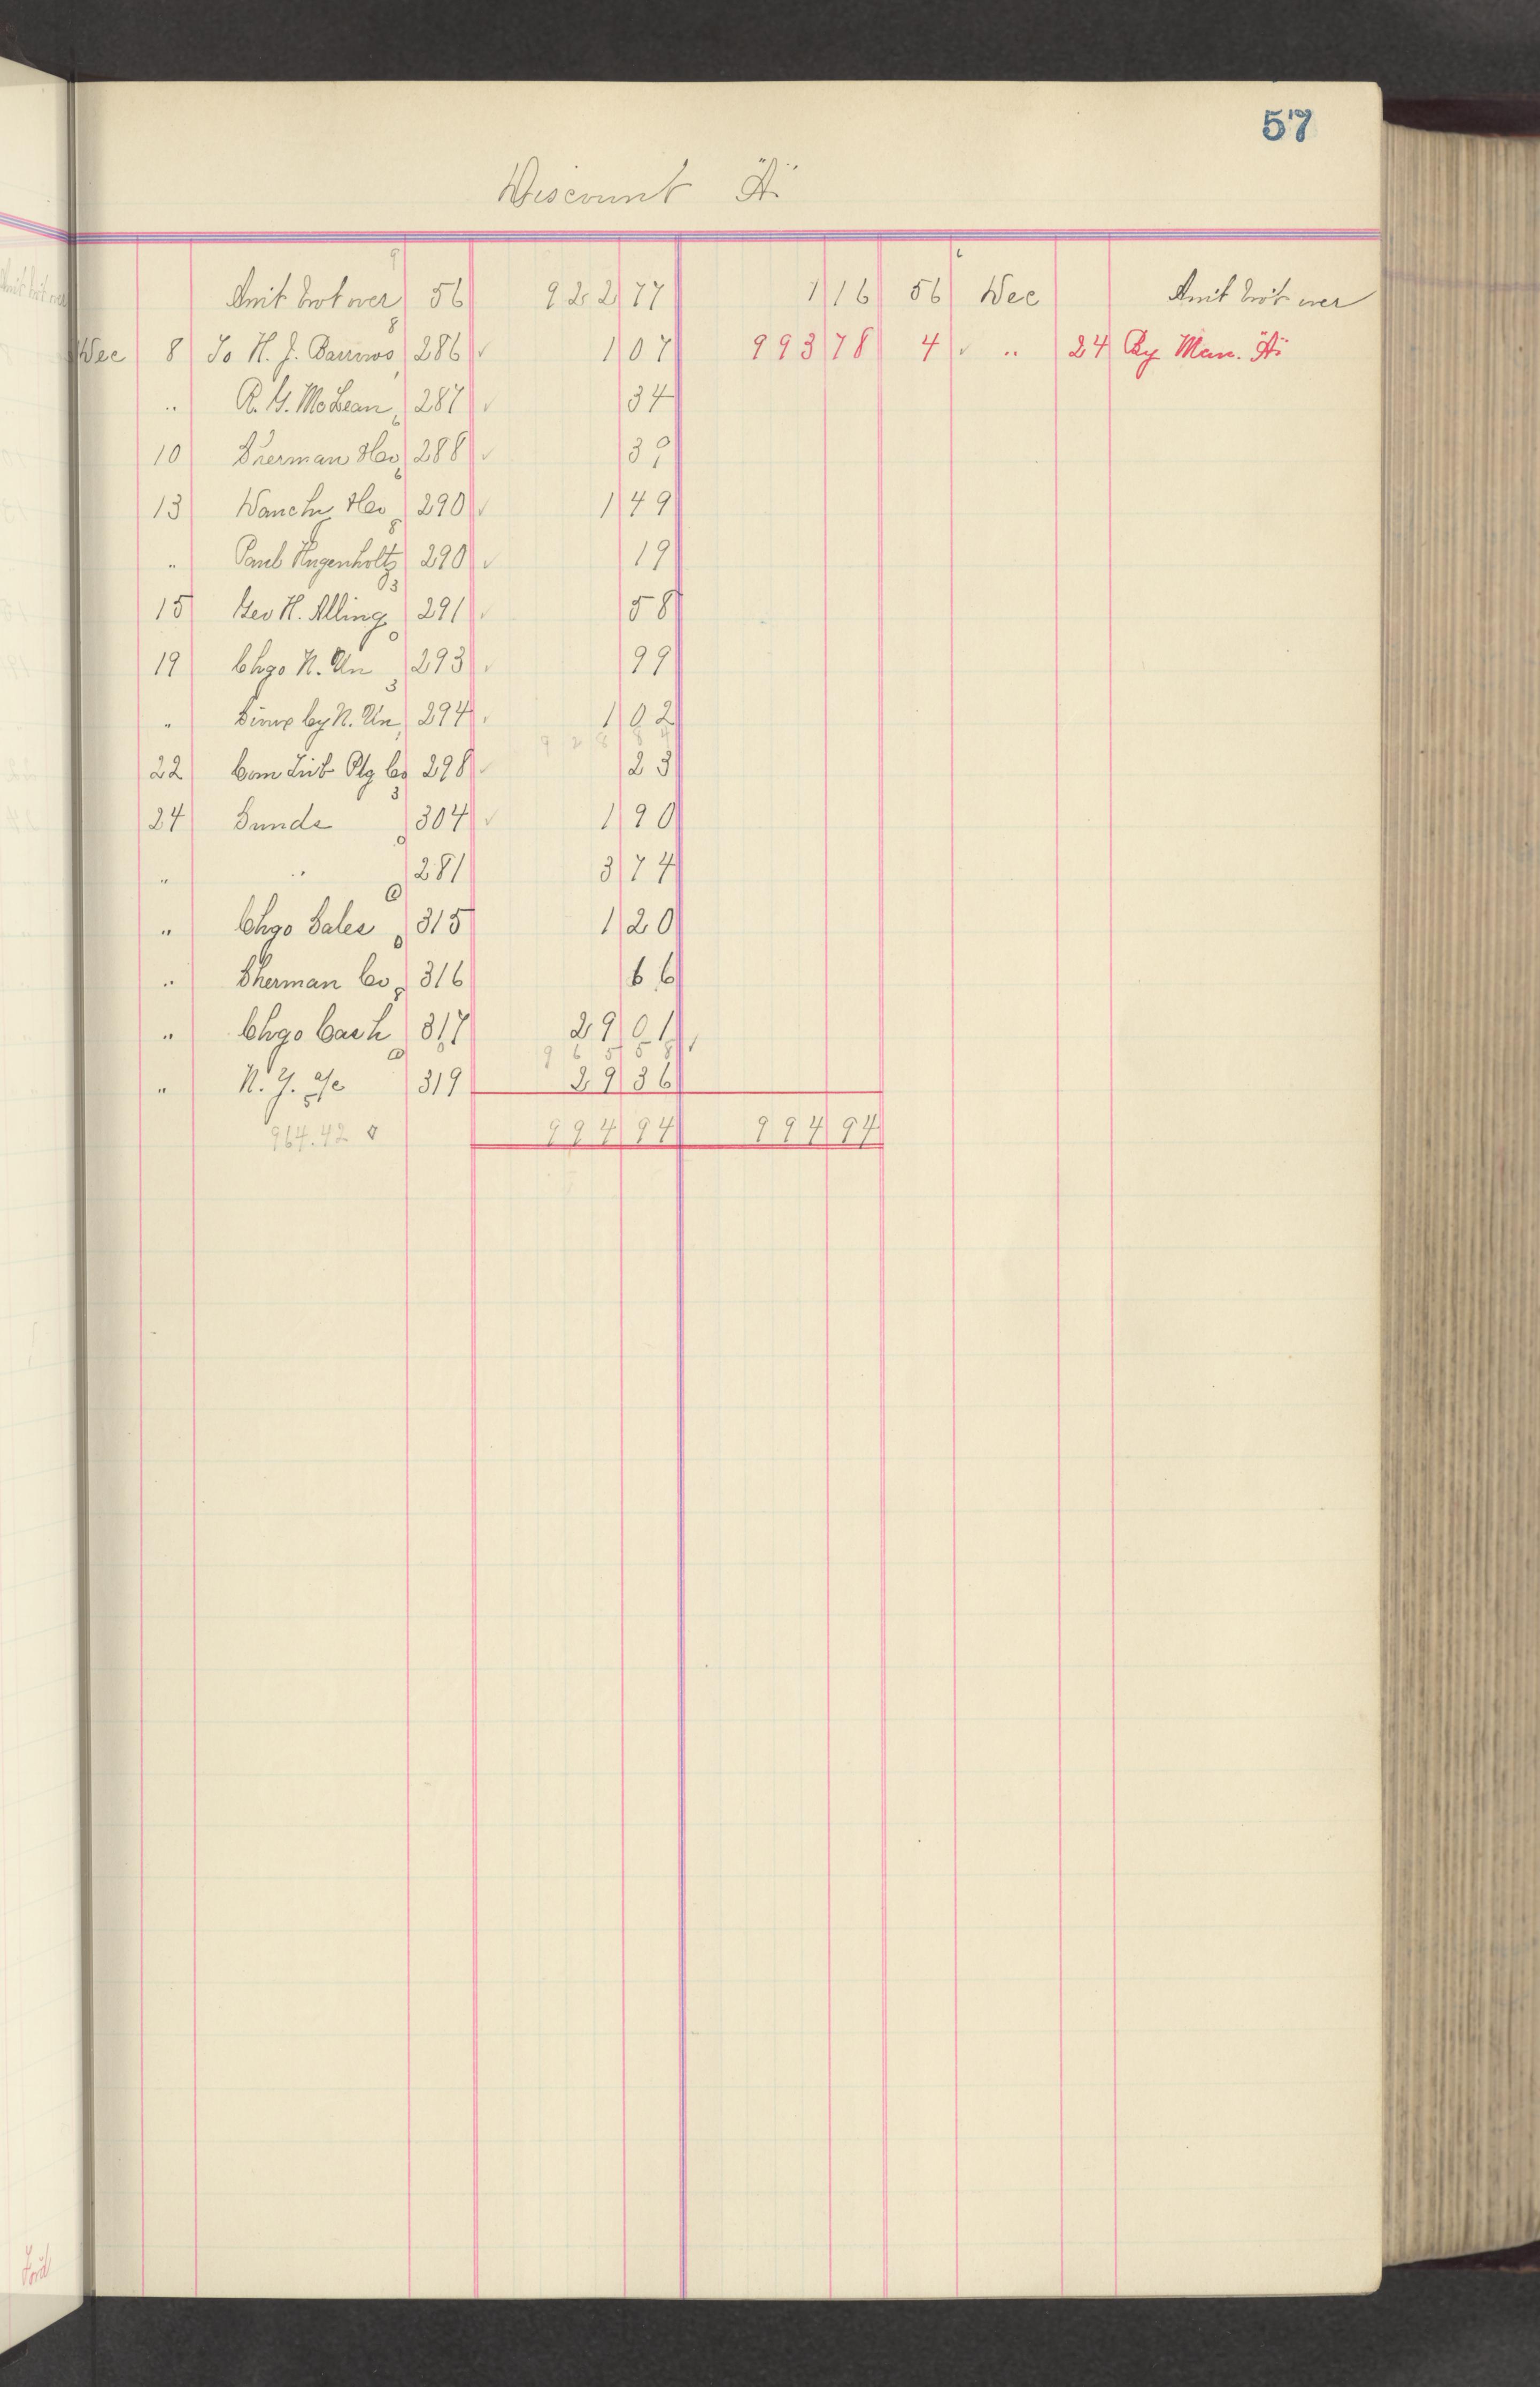 57
Discount
Amt brot over 56 922 77 1 16 56 Dec Amt brot over
Dec 8 To H. J. Barrows 286 1 07 993 78 4 " 24 By Man.
" R. G. McLean 287 34
10 Sherman Hou 288 39
13 Hou 290 1 49
" Paul Hugenholtz 290 19
15 Geo H. Alling 291 58
19 Chgo N. Un 293 99
" by N. Un 294 1 02
928 84
22 Com Ptg Co 298 23
24 Sunds 304 1 90
" " 281 3 74
" Chgo Sales 315 1 20
" Sherman Co 316 66
" Chgo Cash 317 29 01
965 58
" N. Y. a/c 319 29 36
964.42 994 94 994 94